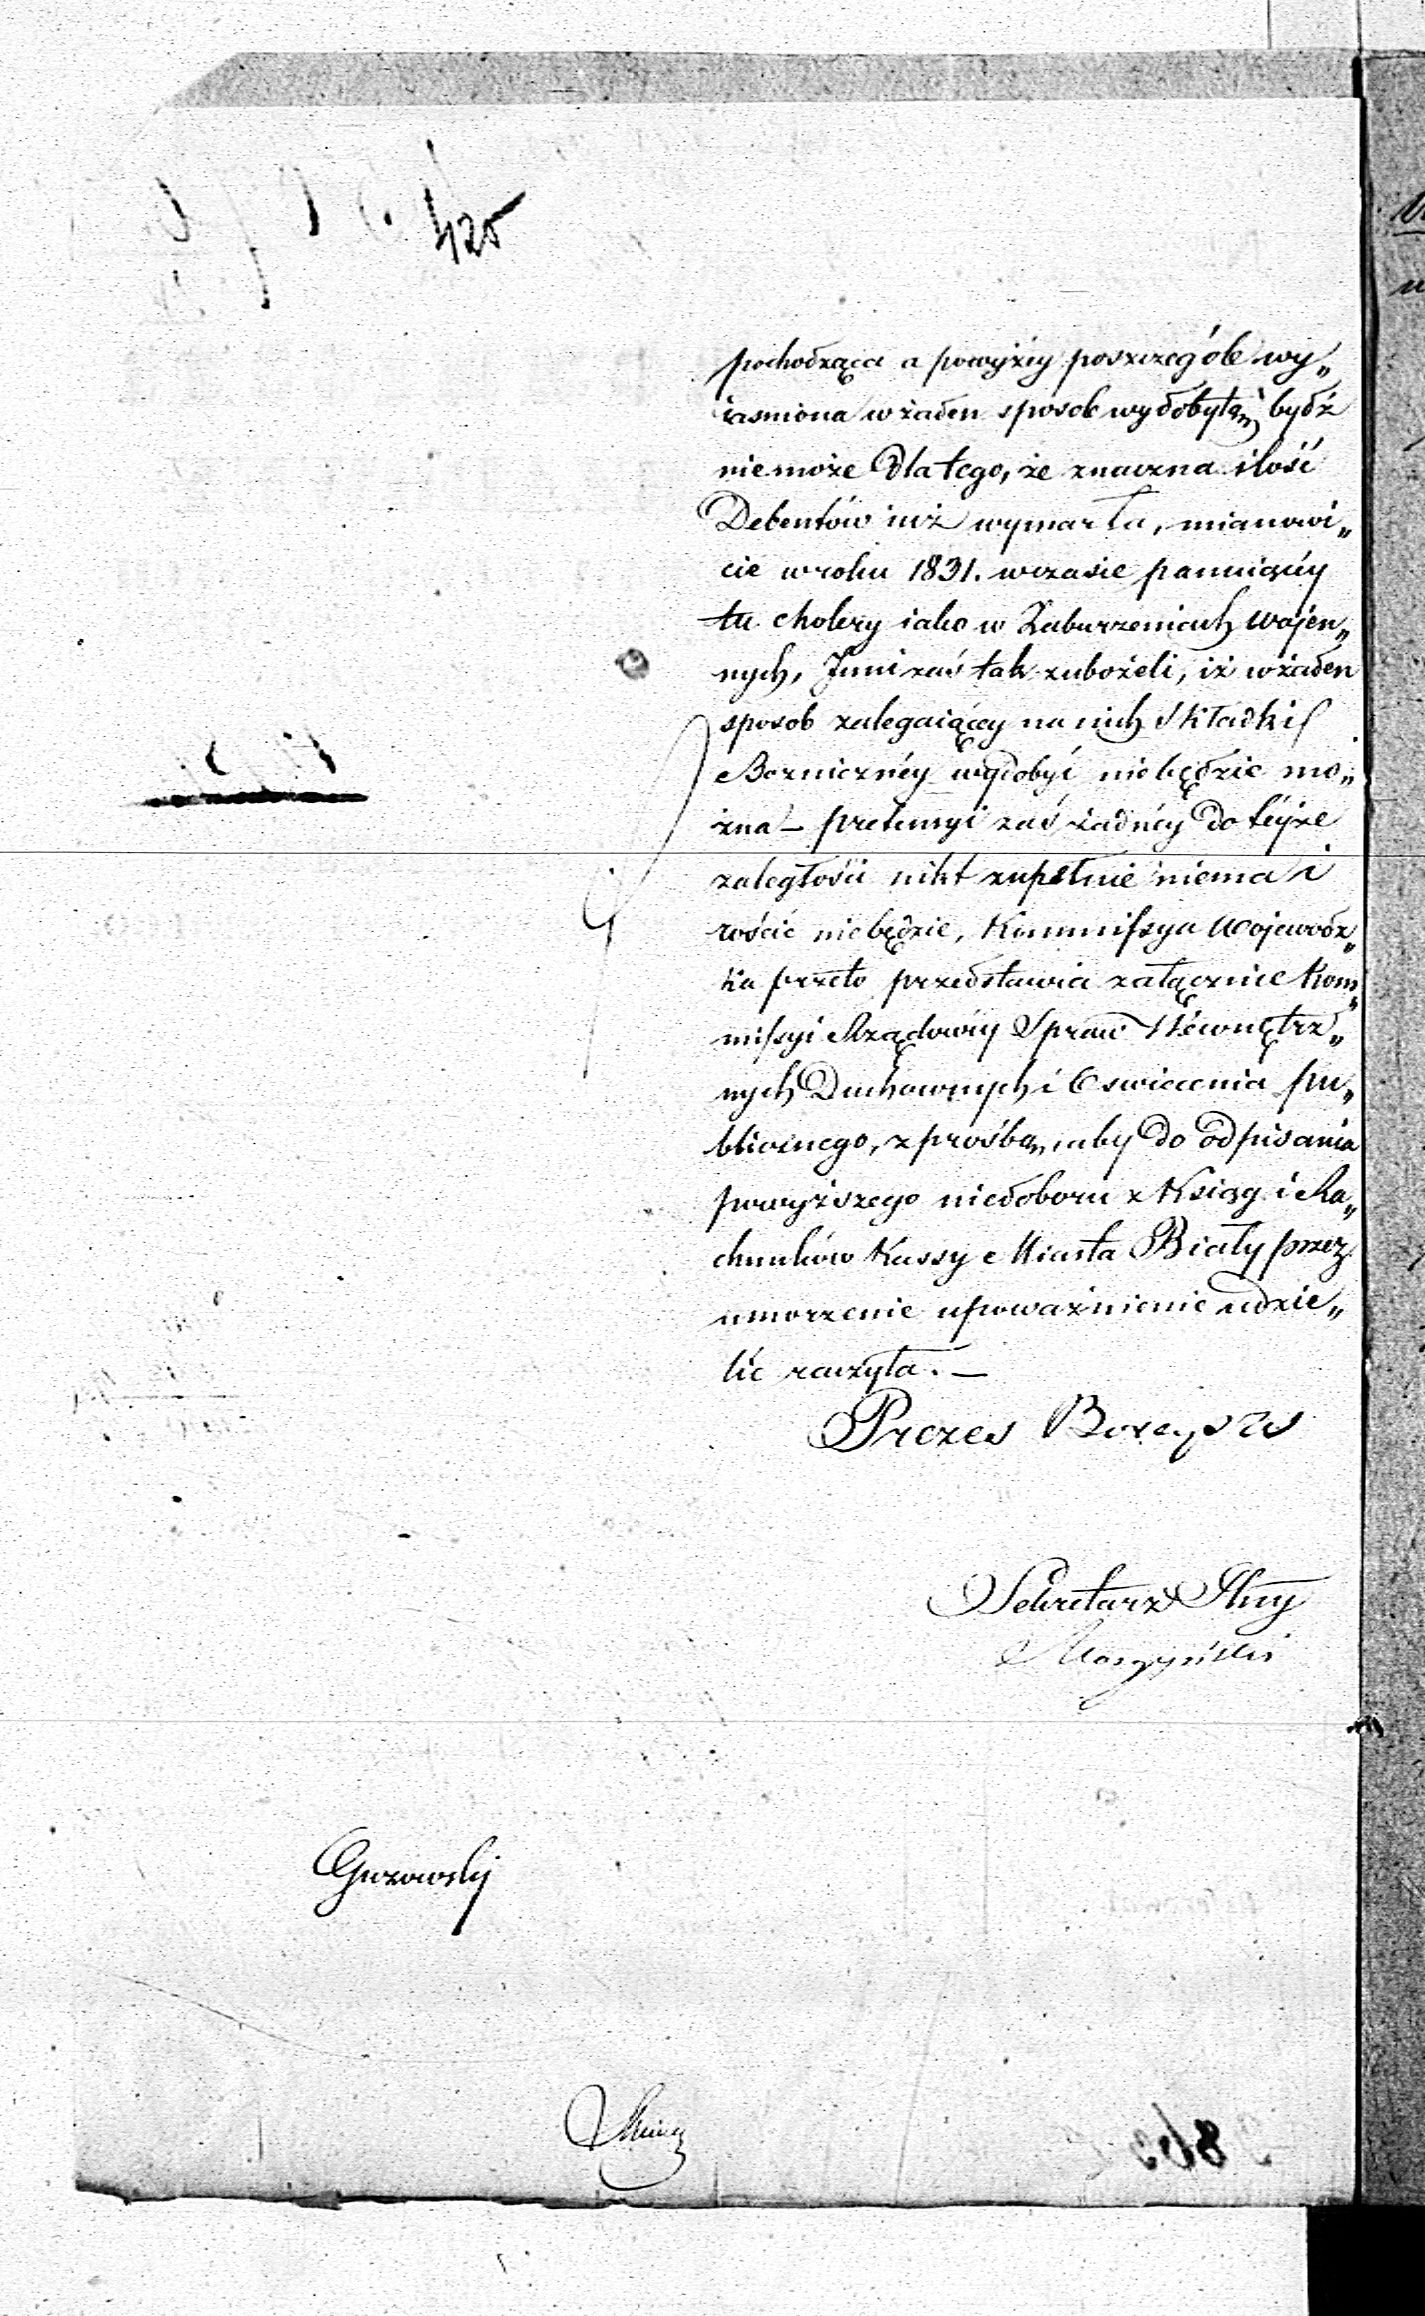 425
pochodząca a powyżey poszczególe wy„
iasniona w żaden sposob wydobytą bydź
niemoże dla tego, że znaczna ilość
Debentów iuż wymarła, mianowi„
cie w roku 1831. w czasie panuiącéy
tu cholery iako w Zaburzeniach wojen„
nych, Inni zaś tak zubożeli, iż w żaden
sposob zalegaiącey na nich Składki
Boznicznéy wydobyć nie będzie mo„
żna – pretensyi zaś żadnéy do téyże
zaległości nikt zupełnie niema i
rościć nie będzie, Kommissya Wojewodz„
ka przeto przedstawia załącznie Kom„
missyi Rządowéy Spraw Wewnętrz„
nych Duchownych i Oswiecenia pu„
blicznego, z prośbą, aby do odpisania
powyższego niedoboru z Ksiąg i Ra„
chunków Kassy Miasta Biały przez
umorzenie upoważnienie udzie„
lić raczyła. –
Prezes
Sekretarz Jlny